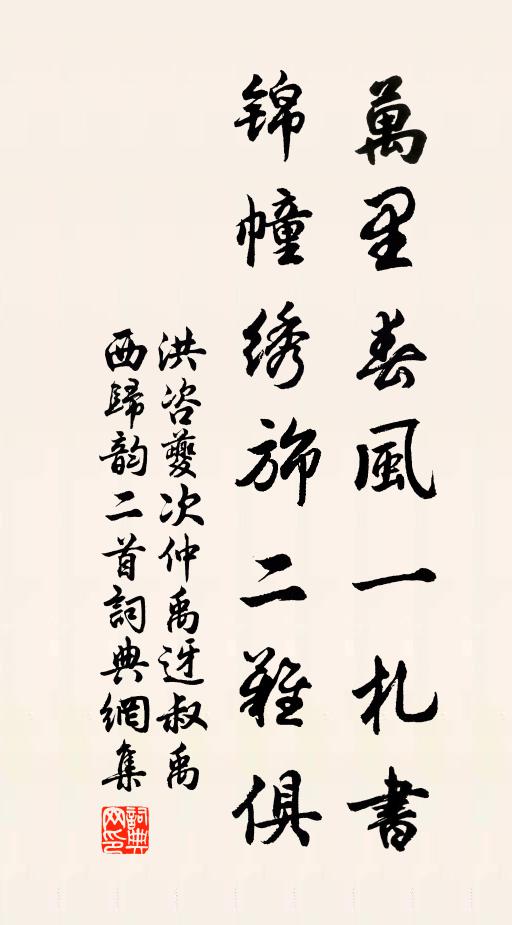 萬里春風一札書
锦幢绣斾二難俱
洪咨夔次仲禹迓叔禹
西歸韵二首詞典網集
詞典網印